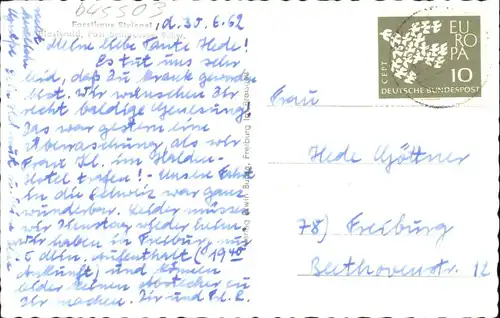 045503
Forsthaus
, d. 30.6.62
Meine liebe Tante Hede!
Es tut uns sehr
leid, daß Du krank geworden
bist. Wir wünschen Dir
recht baldige Genesung.
Das war gestern eine
Überraschung, als wir
Frau Kl. im Halden-
Hotel trafen! - Unsere Fahrt
in die Schweiz war ganz
wunderbar. Leider müssen
wir Dienstag wieder heim.
Wir haben in Freiburg nur
5 Min. Aufenthalt (19 40
Ankunft) und können
leider keinen Abstecher zu
Dir machen. Dir und Fr. L.
Freiburg
EUROPA
CEPT
10
DEUTSCHE BUNDESPOST
Frau
Hede Göttner
78) Freiburg
Beethovenstr. 12